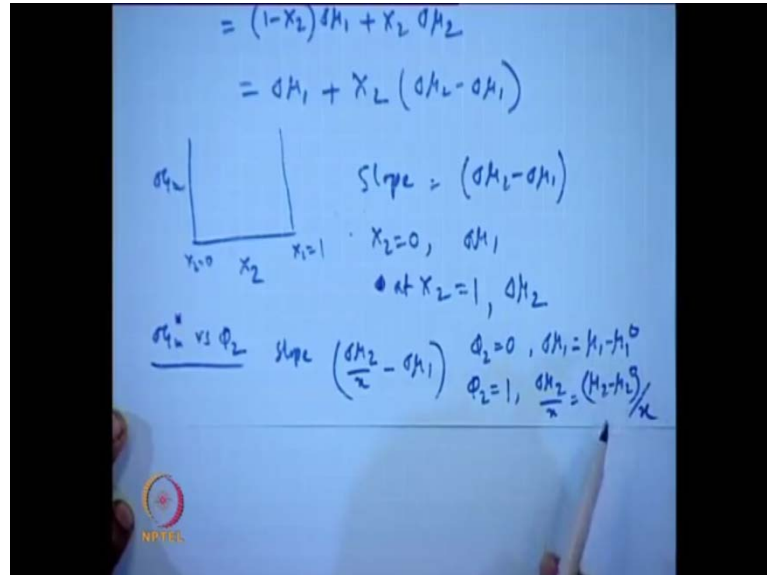 = (1-x₂) Δμ₁ + x₂ Δμ₂
= Δμ₁ + x₂ (Δμ₂ - Δμ₁)
ΔGₘ
x₂=0 x₂ x₂=1
Slope = (Δμ₂ - Δμ₁)
x₂=0, Δμ₁
at x₂=1, Δμ₂
ΔGₘ* vs φ₂ slope (Δμ₂/x - Δμ₁)
φ₂=0, Δμ₁ = μ₁-μ₁⁰
φ₂=1, Δμ₂/x = (μ₂-μ₂⁰)/x
NPTEL